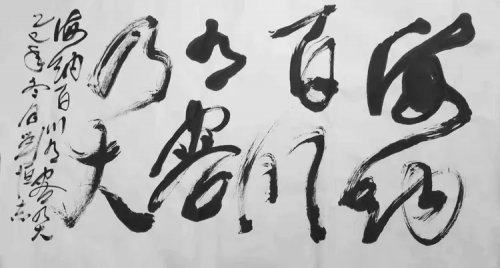 海纳
百川
有容
乃大
海纳百川有容乃大
年冬月